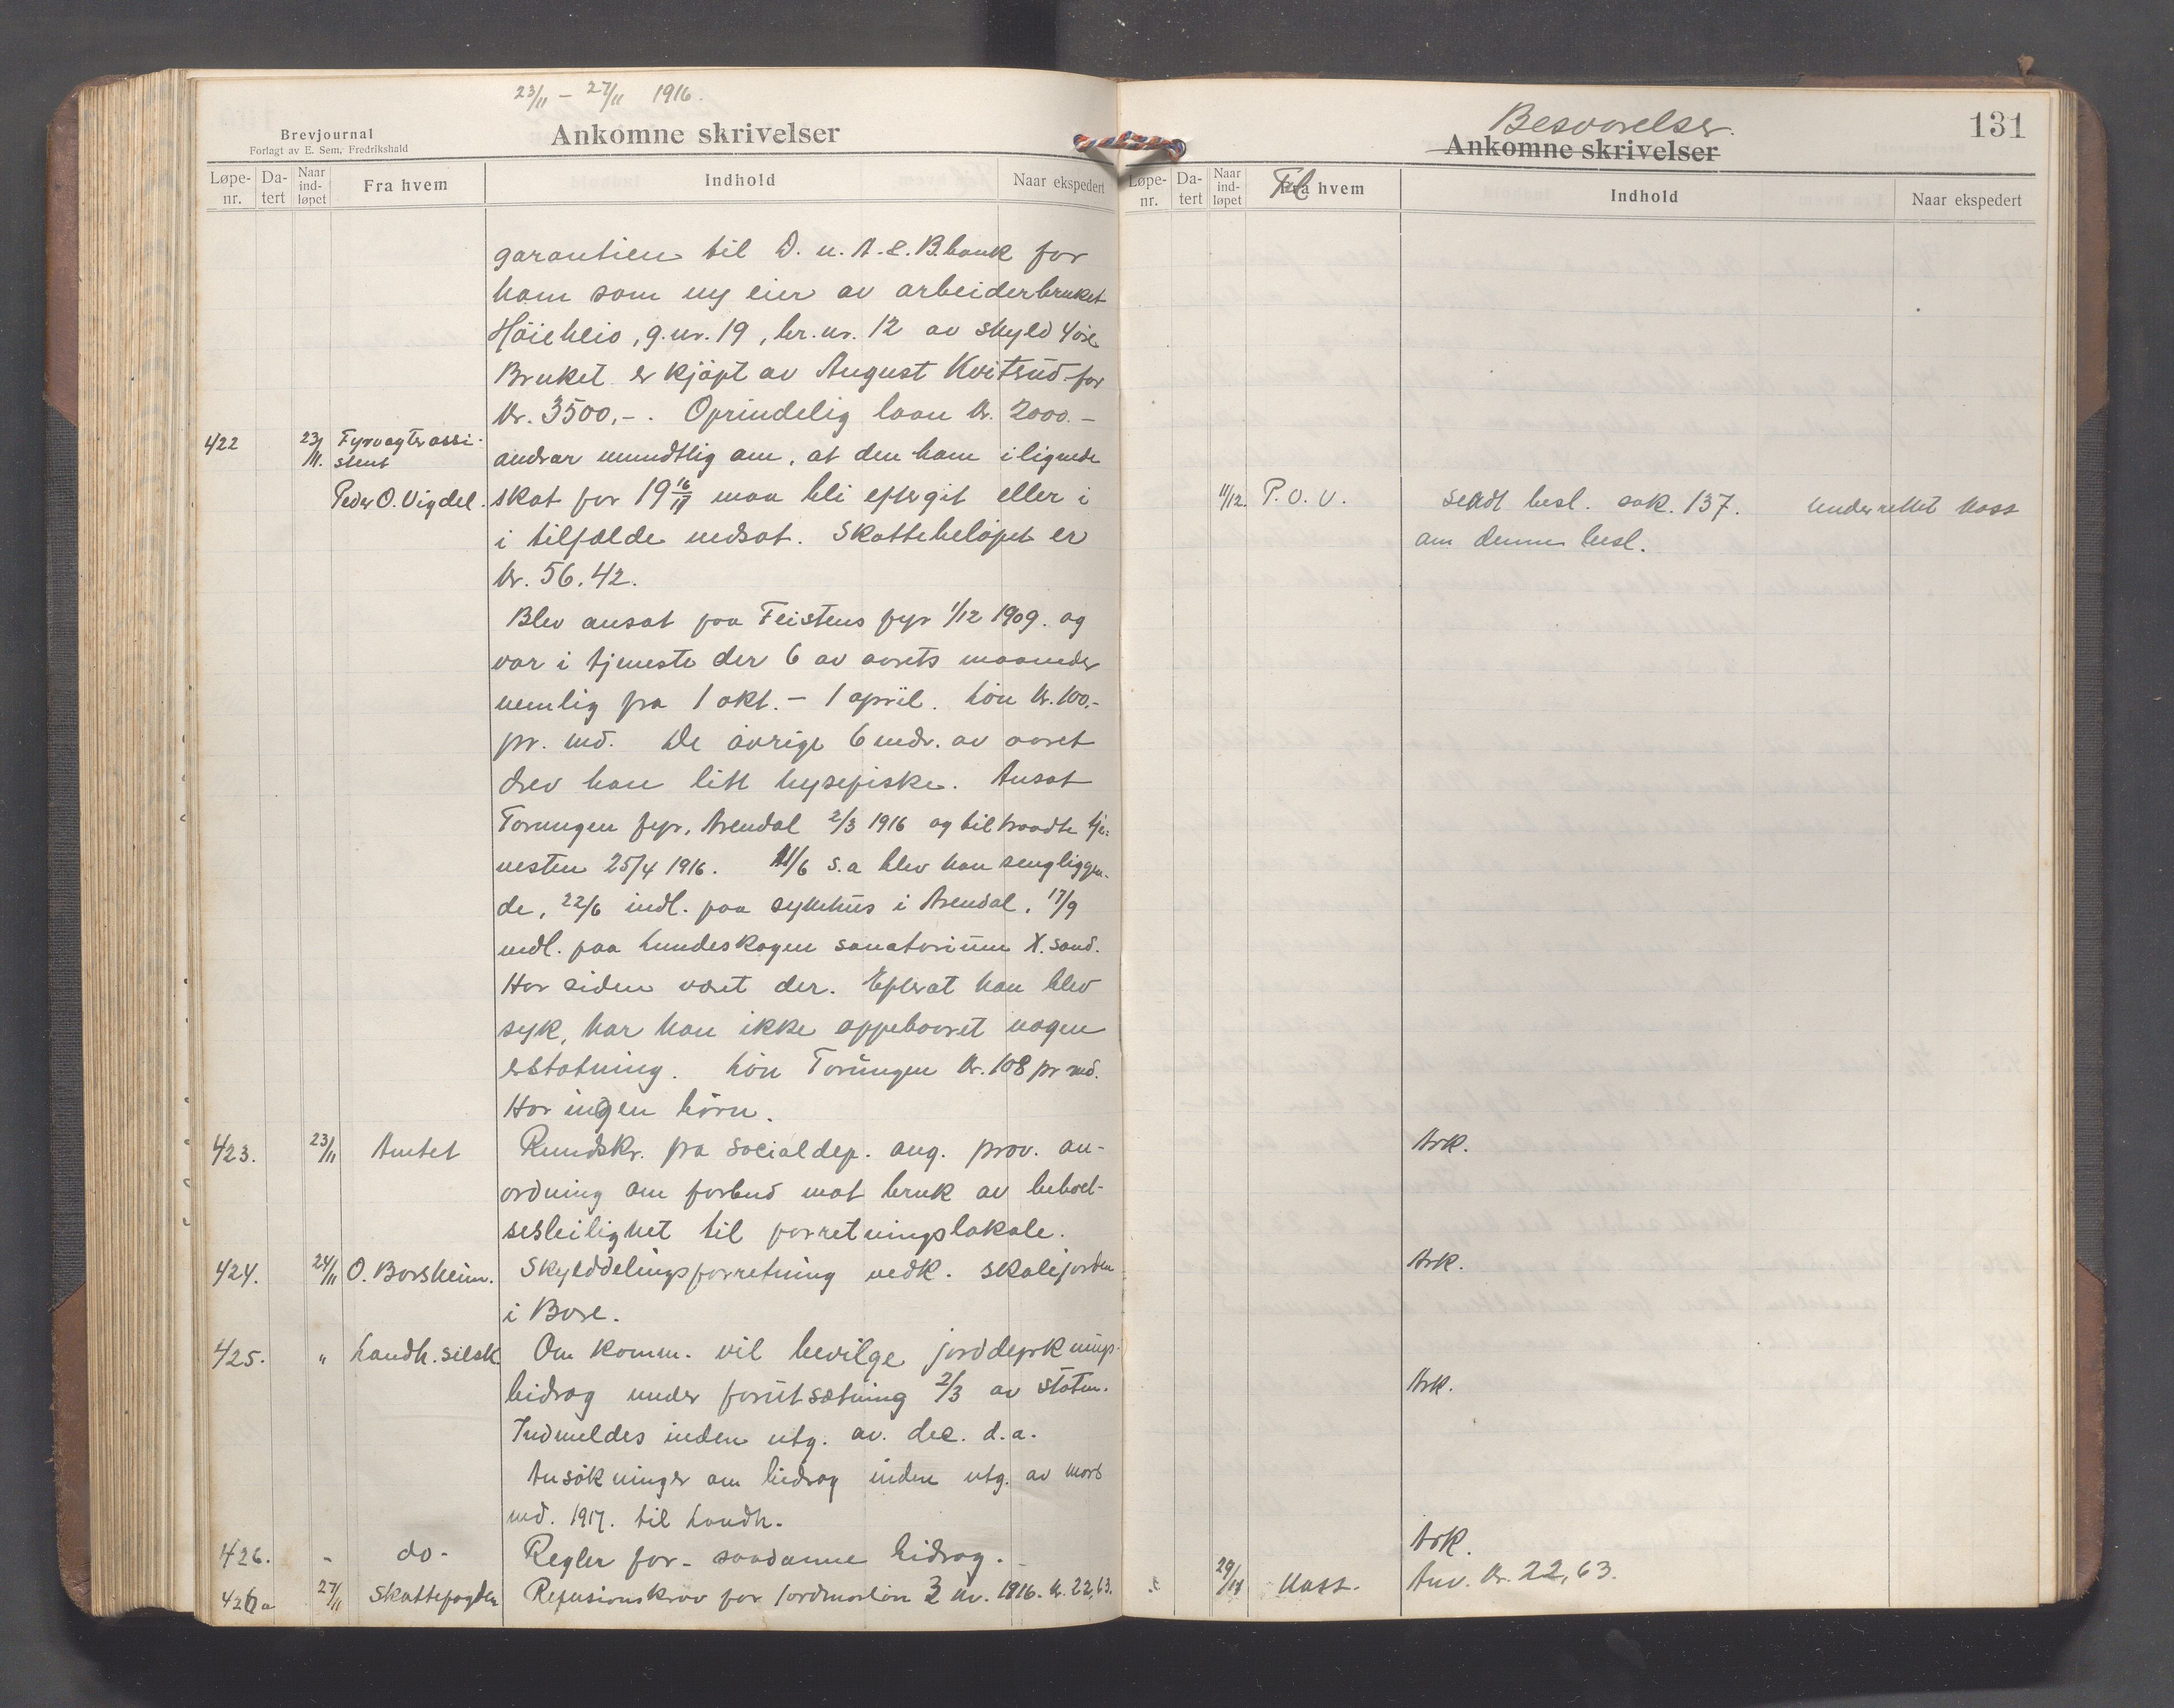 23/11 – 27/11 1916.
Brevjournal
Forlagt av E. Sem, Fredrikshald
Ankomne skrivelser
Løpe-nr. Da-tert Naar ind-løpet Fra hvem Indhold Naar ekspedert
garantien til D. u. A. e. B.bank for
ham som ny eier av arbeiderbruket
Höiehlio, g.nr. 19, br.nr. 12 av skyld 4 öre
Bruket er kjöpt av August Kvitsud for
kr. 3500,-. Oprindelig laan kr. 2000.-
422 23/11. Fyrvagterassi-
stent
andrar mundtlig om, at den ham ilignede
Peder O. Vigdel. skat for 19 16/17 maa bli eftergit eller i
i tilfælde nedsat. Skattebelöpet er
kr. 56.42.
Blev ansat paa Feistens fyr 1/12 1909. og
var i tjeneste der 6 av aarets maaneder
nemlig fra 1 okt. – 1 april. Lön kr. 100.-
pr. md. De övrige 6 mdr. av aaret
drev han litt hysefiske. Ansat
Torungen fyr, Arendal 2/3 1916 og tiltraadte tje-
nesten 25/4 1916. 11/6 s.a blev han sengliggen-
de, 22/6 indl. paa sykehus i Arendal, 17/9
indl. paa Lundeskogen sanatorium X.sand.
Har siden været der. Efterat han blev
syk, har han ikke oppebaaret nogen
erstatning. Lön Torungen kr. 108 pr md.
Har ingen börn.
423. 23/11 Amtet Rundskr. fra socialdep. ang. prov. an-
ordning om forbud mot bruk av beboel-
sesleilighet til forretningslokale.
424. 24/11 O. Borsheim. Skylddelingsforretning vedk. skolejorden
i Bore.
425. " Landh. selsk. Om komm. vil bevilge jorddyrknings-
bidrag under forutsætning 2/3 av staten.
Indmeldes inden utg. av. dec. d.a.
Ansökninger om bidrag inden utg. av mars
md. 1917. til Landh.
426. - do- Regler for - saadanne bidrag.
426a 27/11 Skattefogden Refusionskrav for jordmorlön 3 kv. 1916. kr. 22,63.
Besvarelser.
131
Ankomne skrivelser
Løpe-nr. Da-tert Naar ind-løpet Til Fra hvem Indhold Naar ekspedert
11/12. P. O. V. sendt besl. sak. 137. Underrettet kass
om denne besl.
Ark.
Ark.
Ark.
Ark.
29/11 Kass. Anv. kr. 22,63.